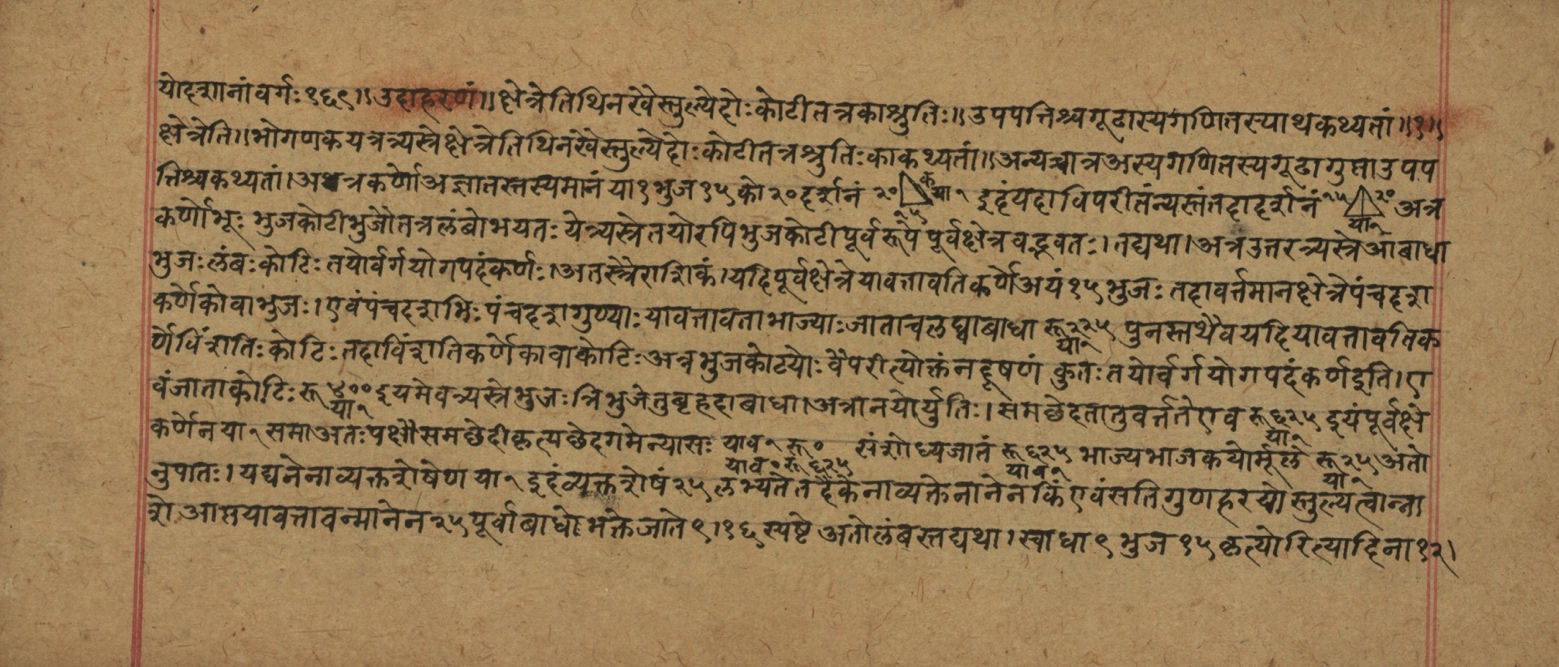 योदशानांवर्गः१६९॥उदाहरणं॥क्षेत्रेतिथिनखैस्तुल्येदोःकोटीतत्रकाश्रुतिः॥उपपत्तिश्चगूढास्यगणितस्याथकथ्यतां॥१॥
क्षेत्रेति॥भोगणकयत्रत्र्यस्रेक्षेत्रेतिथिनखैस्तुल्येदोःकोटीतत्रश्रुतिःकाकथ्यतां॥अन्यच्चात्रअस्यगणितस्यगूढागुप्ताउपप
त्तिश्चकथ्यतां।अथत्रकर्णोअज्ञातस्तस्यमानंया१भुज१५को२०दर्शनं२० क या१ १५ इदंयदाविपरीतंन्यस्तंतदादर्शनं१५ २० या१ अत्र
कर्णोभूः भुजकोटीभुजौतत्रलंबोभयतः येत्र्यस्रेतयोरपिभुजकोटीपूर्वरूपे पूर्वक्षेत्रवद्भवतः।तद्यथा।अत्रउत्तरत्र्यस्रेआबाधा
भुजःलंबःकोटिःतयोर्वर्गयोगपदंकर्णः।अतस्त्रैराशिकं।यदिपूर्वक्षेत्रेयावत्तावतिकर्णेअयं१५भुजःतदावर्त्तमानक्षेत्रेपंचदश
कर्णेकोवाभुजः।एवंपंचदशभिःपंचदशगुण्याःयावत्तावताभाज्याःजाताचलघ्वाबाधा रू२२५ या१ पुनस्तथैवयदियावत्तावतिक
र्णेविंशतिःकोटिःतदाविंशतिकर्णेकावाकोटिःअत्रभुजकोट्योःवैपरीत्योक्तंनदूषणं कुतःतयोर्वर्गयोगपदंकर्णइति।ए
वंजाताकोटिःरू४०० या१ इयमेवत्र्यस्रेभुजःत्रिभुजेतुबृहदाबाधा।अत्रानयोर्युतिः।समछेदतातुवर्त्ततेएव रू६२५ या१ इयंपूर्वक्षे
कर्णेनया१समाअतःपक्षौसमछेदीकृत्यछेदगमेन्यासः याव१रू० याव०रू६२५ संशोध्यजातं रू६२५ याव१ भाज्यभाजकयोर्मूले रू२५ या१ अतो
नुपातः।यद्यनेनाव्यक्तशेषेण या१इदंव्यक्तशेषं२५लभ्यतेतदैकेनाव्यक्तेनानेनकिंएवंसतिगुणहरयोस्तुल्यत्वान्ना
शे आप्तयावत्तावन्मानेन२५पूर्वाबाधेभक्तेजाते९।१६स्पष्टेअतोलंबस्तद्यथा।स्वाधा९भुज१५कृत्योरित्यादिना१२।